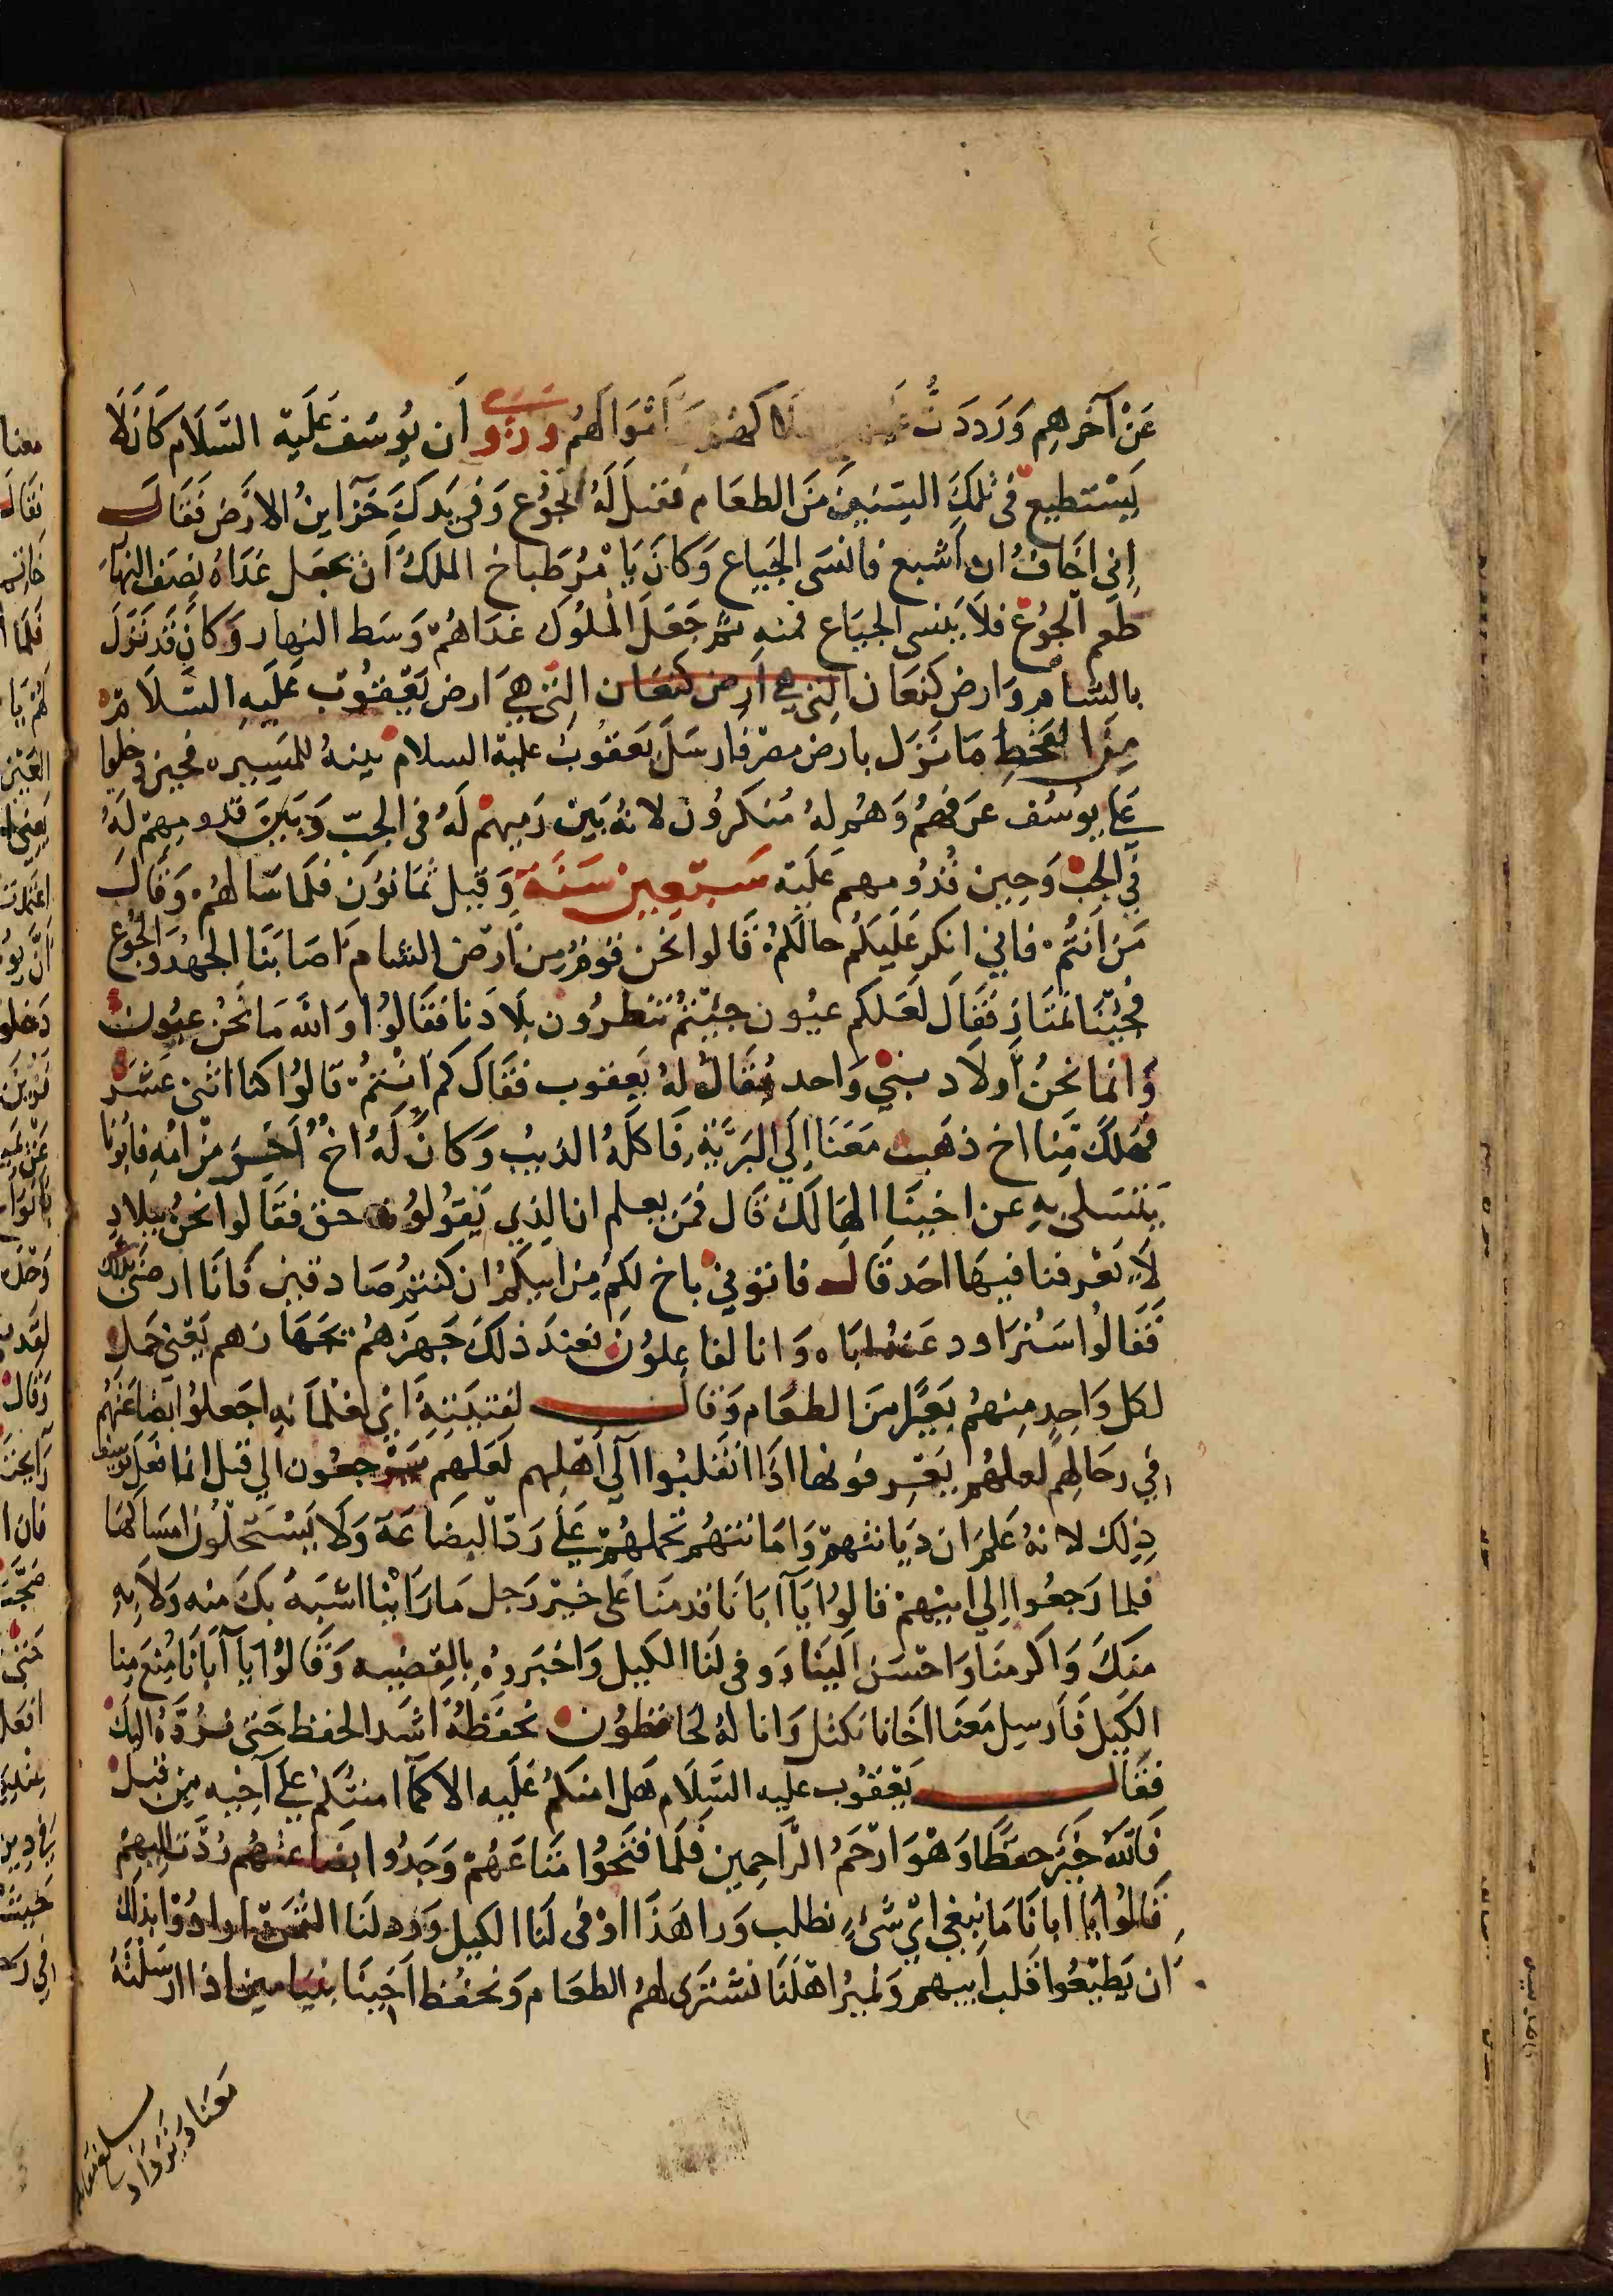 عَنْ آخَرِهِم وَرَدَدَتُّ أَمْوَالَهُمْ وروي أَن يُوسُف عَلَيْه السَّلَام كَانَ لَا
يَسْتطيع في تِلكَ السّنين مَنَ الطعَام فقيل لَهُ الجُوْع وَفى يَدكَ خَزَاينُ الارَض فَقَالَ
اِني اخَافُ ان اَشبع فانسَى الجيَاع وَكانَ يَامُرُ طباخ الملكَ اَن يجعَل غدَاه نِصَف النهَار
طعم الجُوْع فلاَ ينسى الجيَاع فمنه ثم جَعَلَ الملُوك غدَاهُمْ وَسَط النهار وَكانَ قَد نَزَلَ
بالشام وَارض كنعَان التي هي اَرض كنعَان التى هيَ ارض يَعقُوب عَلَيهِ السَّلَام
مِنَ القحَطِ مَا نَزَل بارض مصر فارسَلَ يَعقوُبُ عليه السلام بنيهُ للمَيره فحين دخلوا
عَلى يوُسُف عرَفهُمُ وَهُم لهُ مُنكرُون لانهُ بَين رَميهمْ لَهُ فى الجبّ وَبَيَن قدومِهمْ لَهُ
في الجبّ وَحِين قُدُومهم عَلَيه سَبعِين سَنَة وَقيل ثمَانوُن فلَما سَالهُمْ وَقَالَ
مَن اَنتُمْ فاني انكر عَلَيكمُ حالَكمْ قَالوا نحَن قومُ مِن اَرض الشام اَصَابَنَا الجهُد وَالجُوع
فجئنَا نمتَار فَقَالَ لعَلكم عيُون جئتمُ تنظرُون بلَادَنا فقَالوُا وَاللَّه مَا نحَنُ عيُون
وَانما نحَنُ اَولَاد نبي وَاحد يُقَالُ لهُ يَعقوب فقَالَ كم اَنتمُ قالوُا كنا اثنى عَشَر
فهَلكَ مِنا اخ ذهَب مَعَنَا اِلي البَرّيَّة فاكلَهُ الذيبُ وَكانَ لَهُ اخُ مِن امّهِ فابونا
يَتسَلى بهِ عن اخينَا الهَالَك قَال فمَن يعلم ان الذِي تقوُلوُن حق فقَالوا نحَنُ ببلادِ
لَا يَعْرفنا فيهَا احَد قَال فاتوني باخ لكمُ مِن ابيكمُ ان كنتمُ صَادقين فَانَا ارضَى بذلك
فَقَالُوا سَنُرَاود عَنهُ اَبَاه وَانا لفاعِلوُن فعِندَ ذلكَ جَهزَهمُ بجهَازهم يَعني حَمل
لكل وَاحِدِ مِنهمُ بَعيرا مِنَ الطعَام وَقَالَ لفتيَتِهِ اي لغلمَانهِ اجعَلوُا بضَاعَتهُم
في رحَالهم لعلهُم يَعرفونها اذَا انقلبُوا اَلي اَهلِهم لَعَلهم يَرجعُون الي قيل انما فعَل يُوسف
ذِلكَ لانهُ عَلمَ ان ديَانتهم وَامَانتهُم تحملهُمْ عَلَي رَدّ البضَاعَة وَلَا يَستحلّون امسَاكهَا
فلما رَجعُوا اِلي ابيهمْ قالوُا يَا اَبَانَا قدمنَا عَلى خيْر رَجل مَا رَاينَا اشبَهُ بكَ منه وَلَا بهِ
منكَ وَاكرمنَا وَاحسَنَ الَينَا وَوفى لَنَا الكَيل وَاخبَروهُ بالِقصَّيه وَقَالوُا يَا اَبَانَا مُنِعَ مِنا
الكَيل فَاَرسِل مَعَنا اخَانا نكتل وَانا لهُ لحَافظوُن نحَفَظهُ اشَد الحفظ حَتى نرُدَّهُ اليكَ
فقَالَ يَعقوُب عليه السَّلَام هَل امنكمُ عَلَيه الا كمَا امنتُكمْ عَلي اَخِيه مِن قبل
فَاللّهُ خَيرُ حفظًا وَهْوَ ارْحَمُ الرَّاحِمين فَلَما فتَحُوا مَتَاعَهُمْ وَجَدُوا بضَاعتهُم رُدَّت اليهمْ
قَالوُا يَا ابانَا مَا نبغي ايْ شَئٍ نطلب وَرا هَذَا اوْفى لَنَا الكيل وَرد لَنَا الثمن ارادوُا بذلكَ
اَن يَطيّبُوا قلَب اَبيهم وَنميرُ اهلَنَا نشتَرى لهُمُ الطعَام وَنحفُظ اَخينَا بنيَامين اذا ارسَلتَهُ
مَعَنا وَنزْدَاد